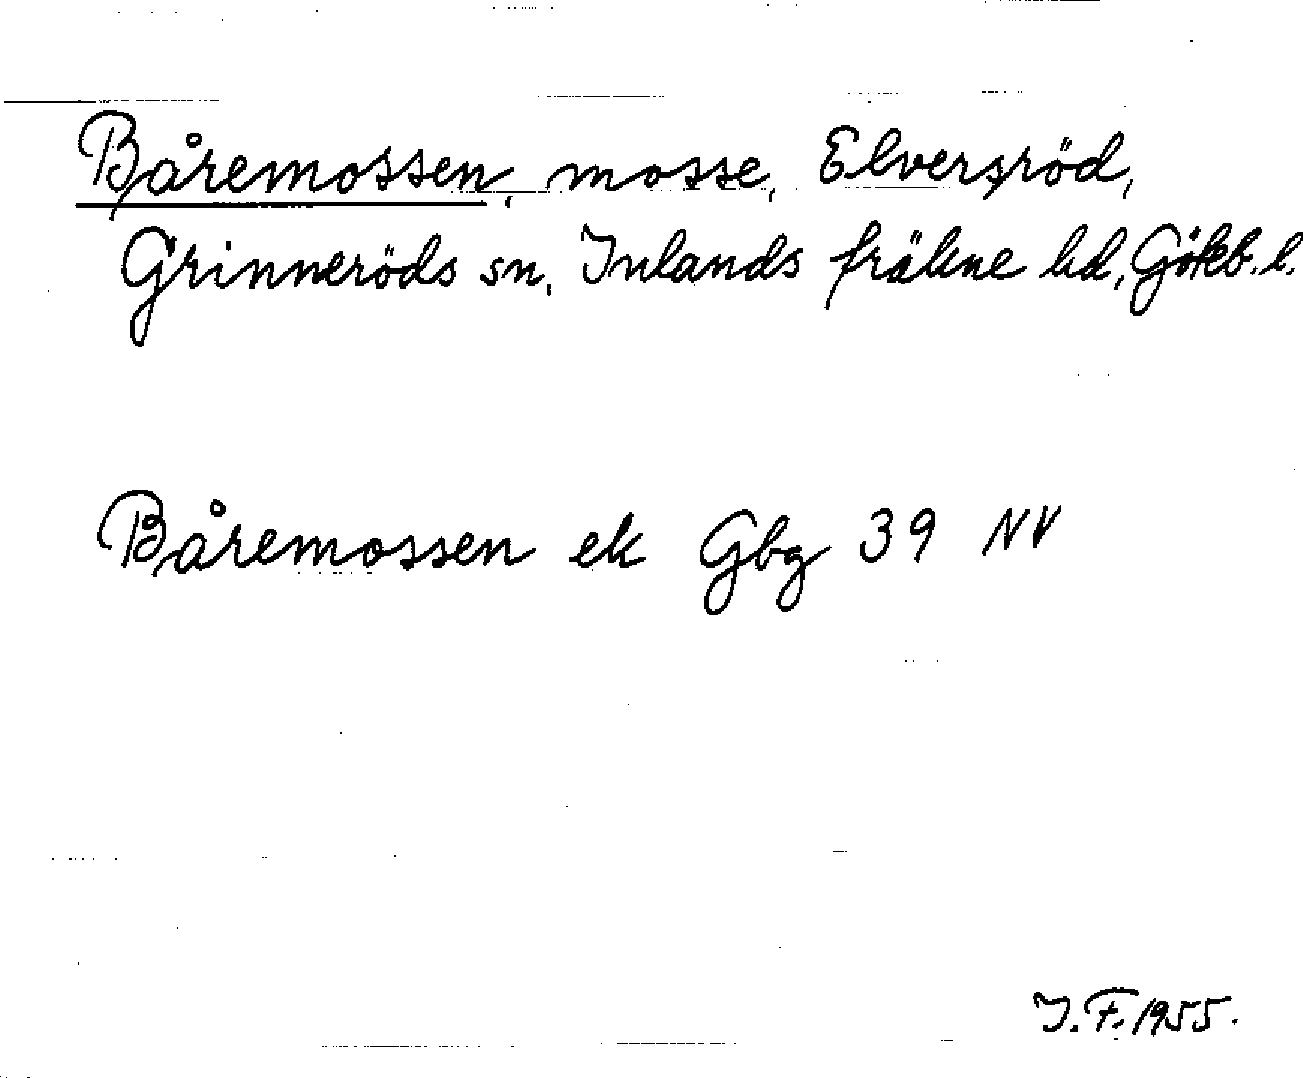 Båremossen, mosse, Elversröd,
Grinneröds sn, Inlands fräkne hd, Götb. l.
Båremossen ek Gbg 39 NV
J. F. 1955.